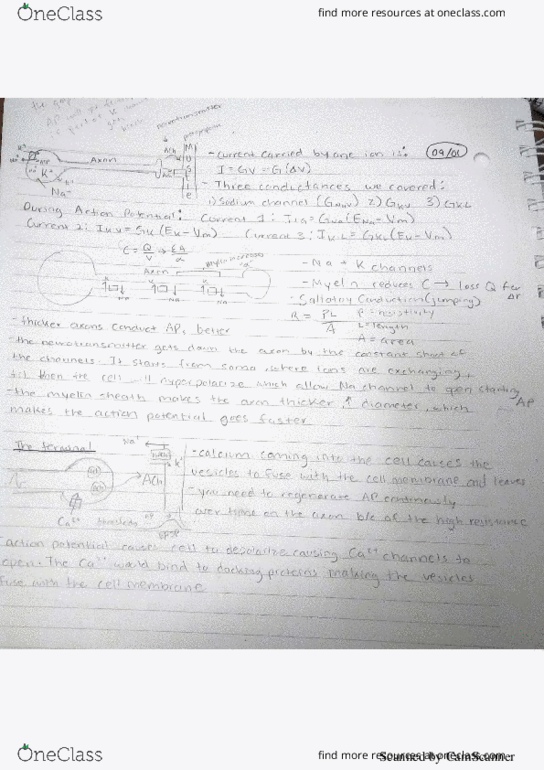 OneClass
find more resources at oneclass.com
Axon
09/01
- Current carried by one ion is:
I = GV = G(ΔV)
- Three conductances we covered:
1) Sodium channel (GNaV) 2) GKV 3) GKL
During Action Potential: Current 1: INa = GNa(ENa - Vm)
Current 2: IKV = GK (EK - Vm) Current 3: IKL = GKL(EK - Vm)
Axon
- Na + K channels
- Myelin reduces C → less Q for ΔV
- Saltatory Conduction (jumping)
R = PL/A P = resistivity
L = length
A = area
- thicker axons conduct AP, better
- the neurotransmitter gets down the axon by the constant shut of
the channels. It starts from soma, where ions are exchanging,
then the cell will hyperpolarize which allow Na channel to open starting AP
- the myelin sheath makes the axon thicker, ↑ diameter, which
makes the action potential goes faster
The terminal
- calcium coming into the cell causes the
vesicles to fuse with the cell membrane and leaves
- you need to regenerate AP continuously
over time on the axon b/c of the high resistance
Na+
ACh
Ca2+
action potential causes cell to depolarize causing Ca2+ channels to
open. The Ca2+ would bind to docking proteins making the vesicles
fuse with the cell membrane
OneClass
find more resources at oneclass.com
Scanned by CamScanner